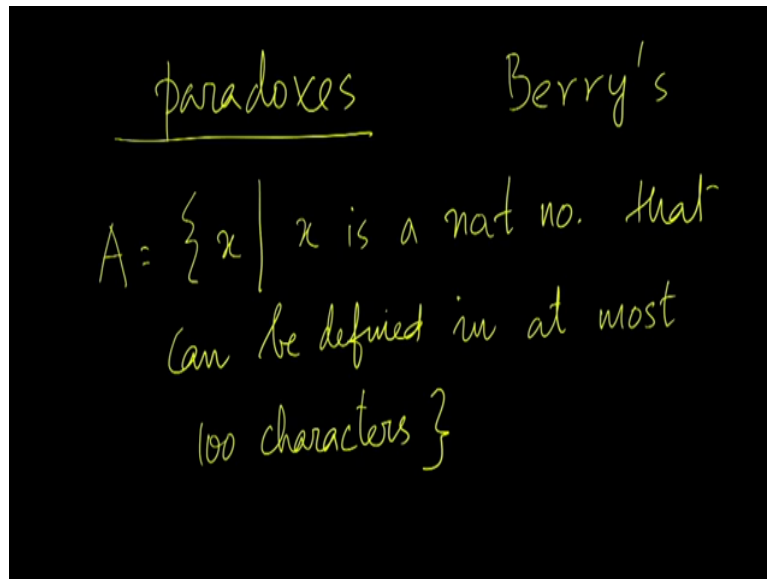 paradoxes Berry's
A = {x | x is a nat no. that
can be defined in at most
100 characters}